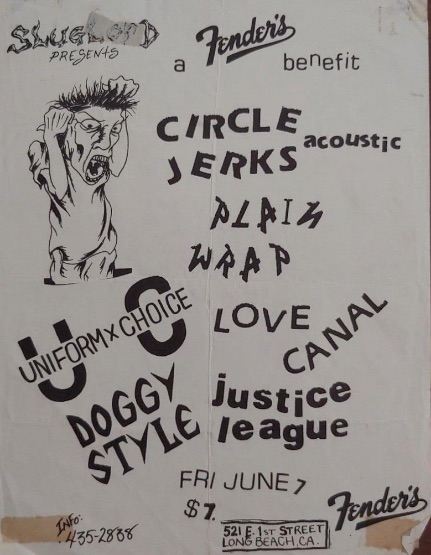 SLUGLORD
PRESENTS
a Fender's benefit
CIRCLE
JERKS acoustic
PLAIN
WRAP
UC
UNIFORM X CHOICE
LOVE
CANAL
DOGGY
STYLE
justice
league
FRI JUNE 7
$7.
INFO:
435-2838
521 E. 1ST STREET
LONG BEACH, CA.
Fender's